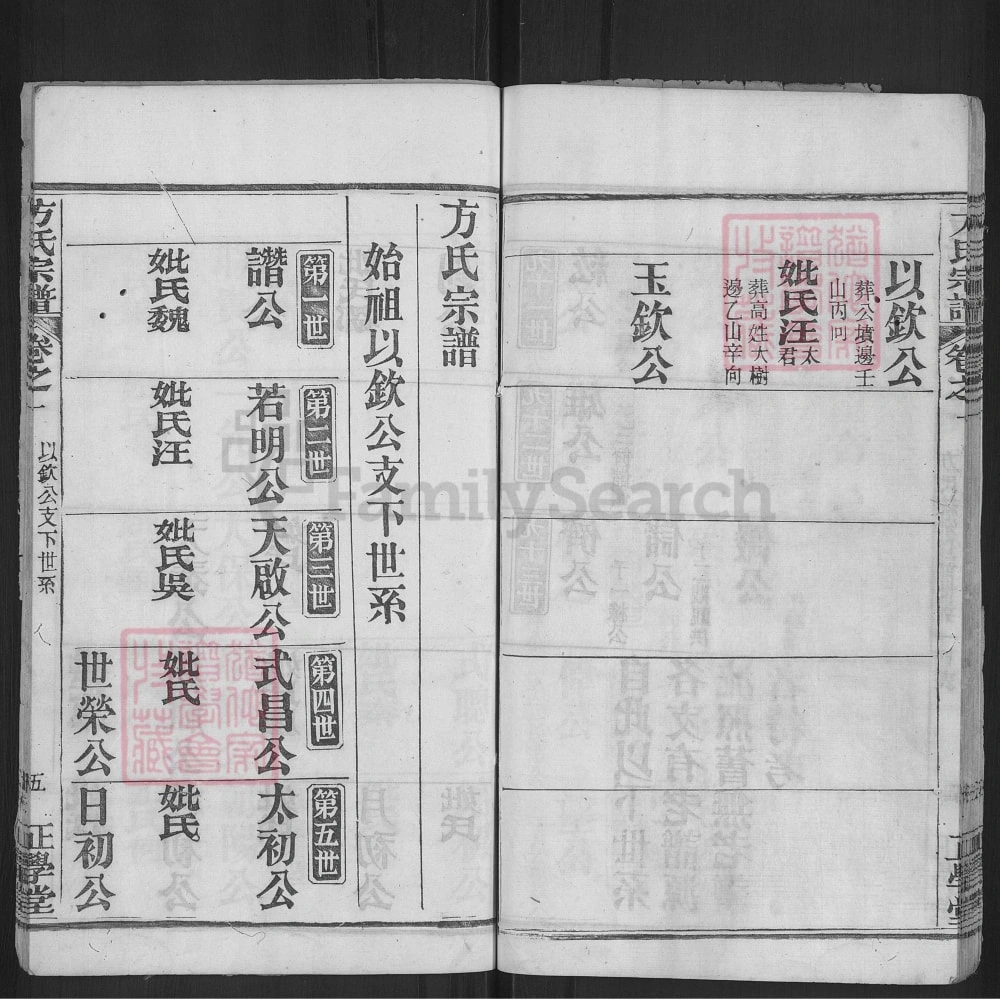 方氏宗譜
卷之一
以欽公
葬公墳邊壬
山丙向
妣氏汪太君
葬高姓大樹
邊乙山辛向
玉欽公
正學堂
方氏宗譜
始祖以欽公支下世系
第一世
第二世
第三世
第四世
第五世
譖公
若明公
天啟公
式昌公
太初公
妣氏魏
妣氏汪
妣氏吳
妣氏
妣氏
世榮公
日初公
方氏宗譜
卷之一
以欽公支下世系
五
正學堂
FamilySearch